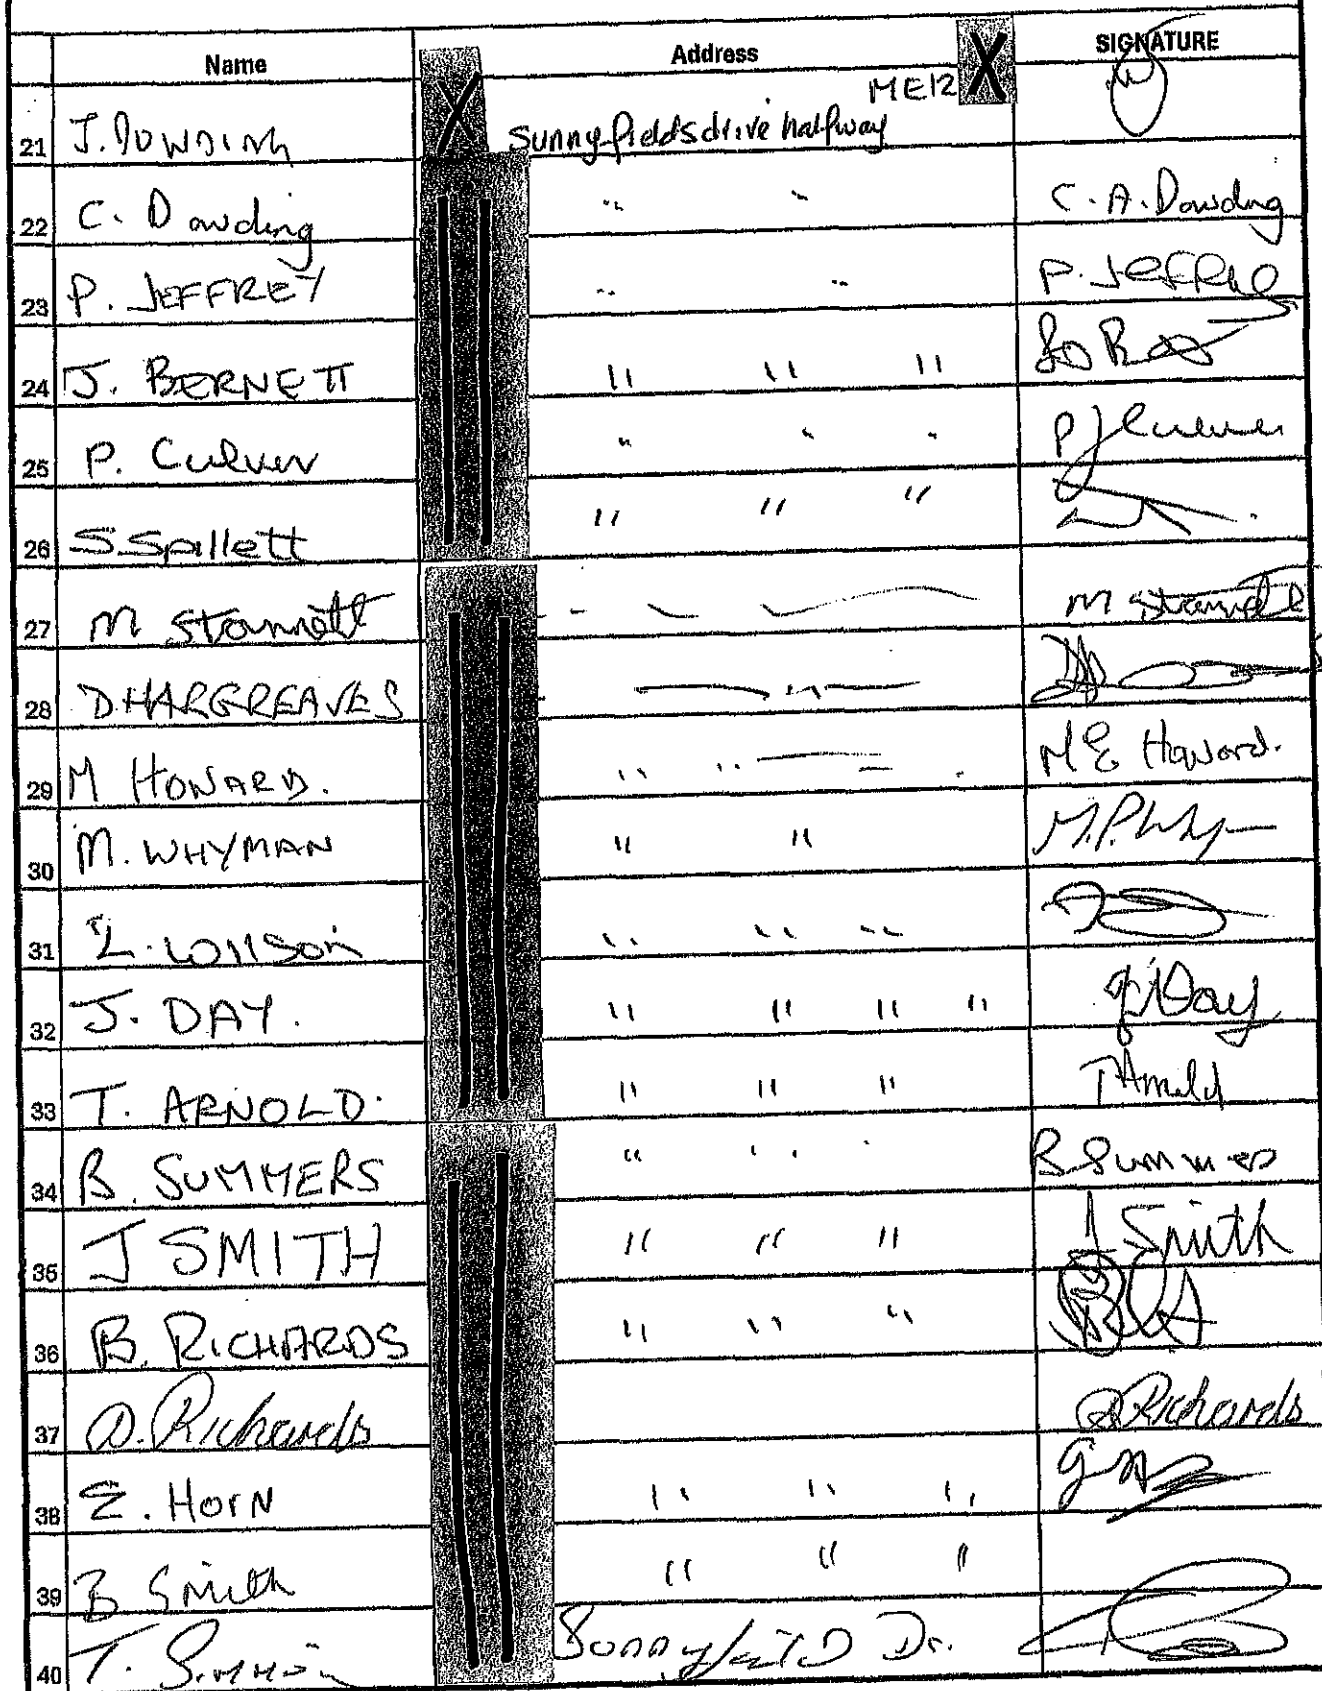 Name Address SIGNATURE
ME12
21 J. DOWDING Sunnyfields drive halfway
22 C. Dowding " " C. A. Dowding
23 P. JEFFREY " " P. Jeffrey
24 J. BERNETT " " "
25 P. Culver " " " P J Culver
26 S. Spillett " " "
27 M Stannett M Stannett
28 D HARGREAVES "
29 M HOWARD. " " M E Howard.
30 M. WHYMAN " " M. P. Why
31 L. Willson " " "
32 J. DAY. " " " " J. Day
33 T. ARNOLD. " " " T Arnold
34 B. SUMMERS " " B Summers
35 J SMITH " " " J Smith
36 B. RICHARDS " " "
37 D. Richards D Richards
38 E. HORN " " "
39 B Smith " " "
40 T. Dr.